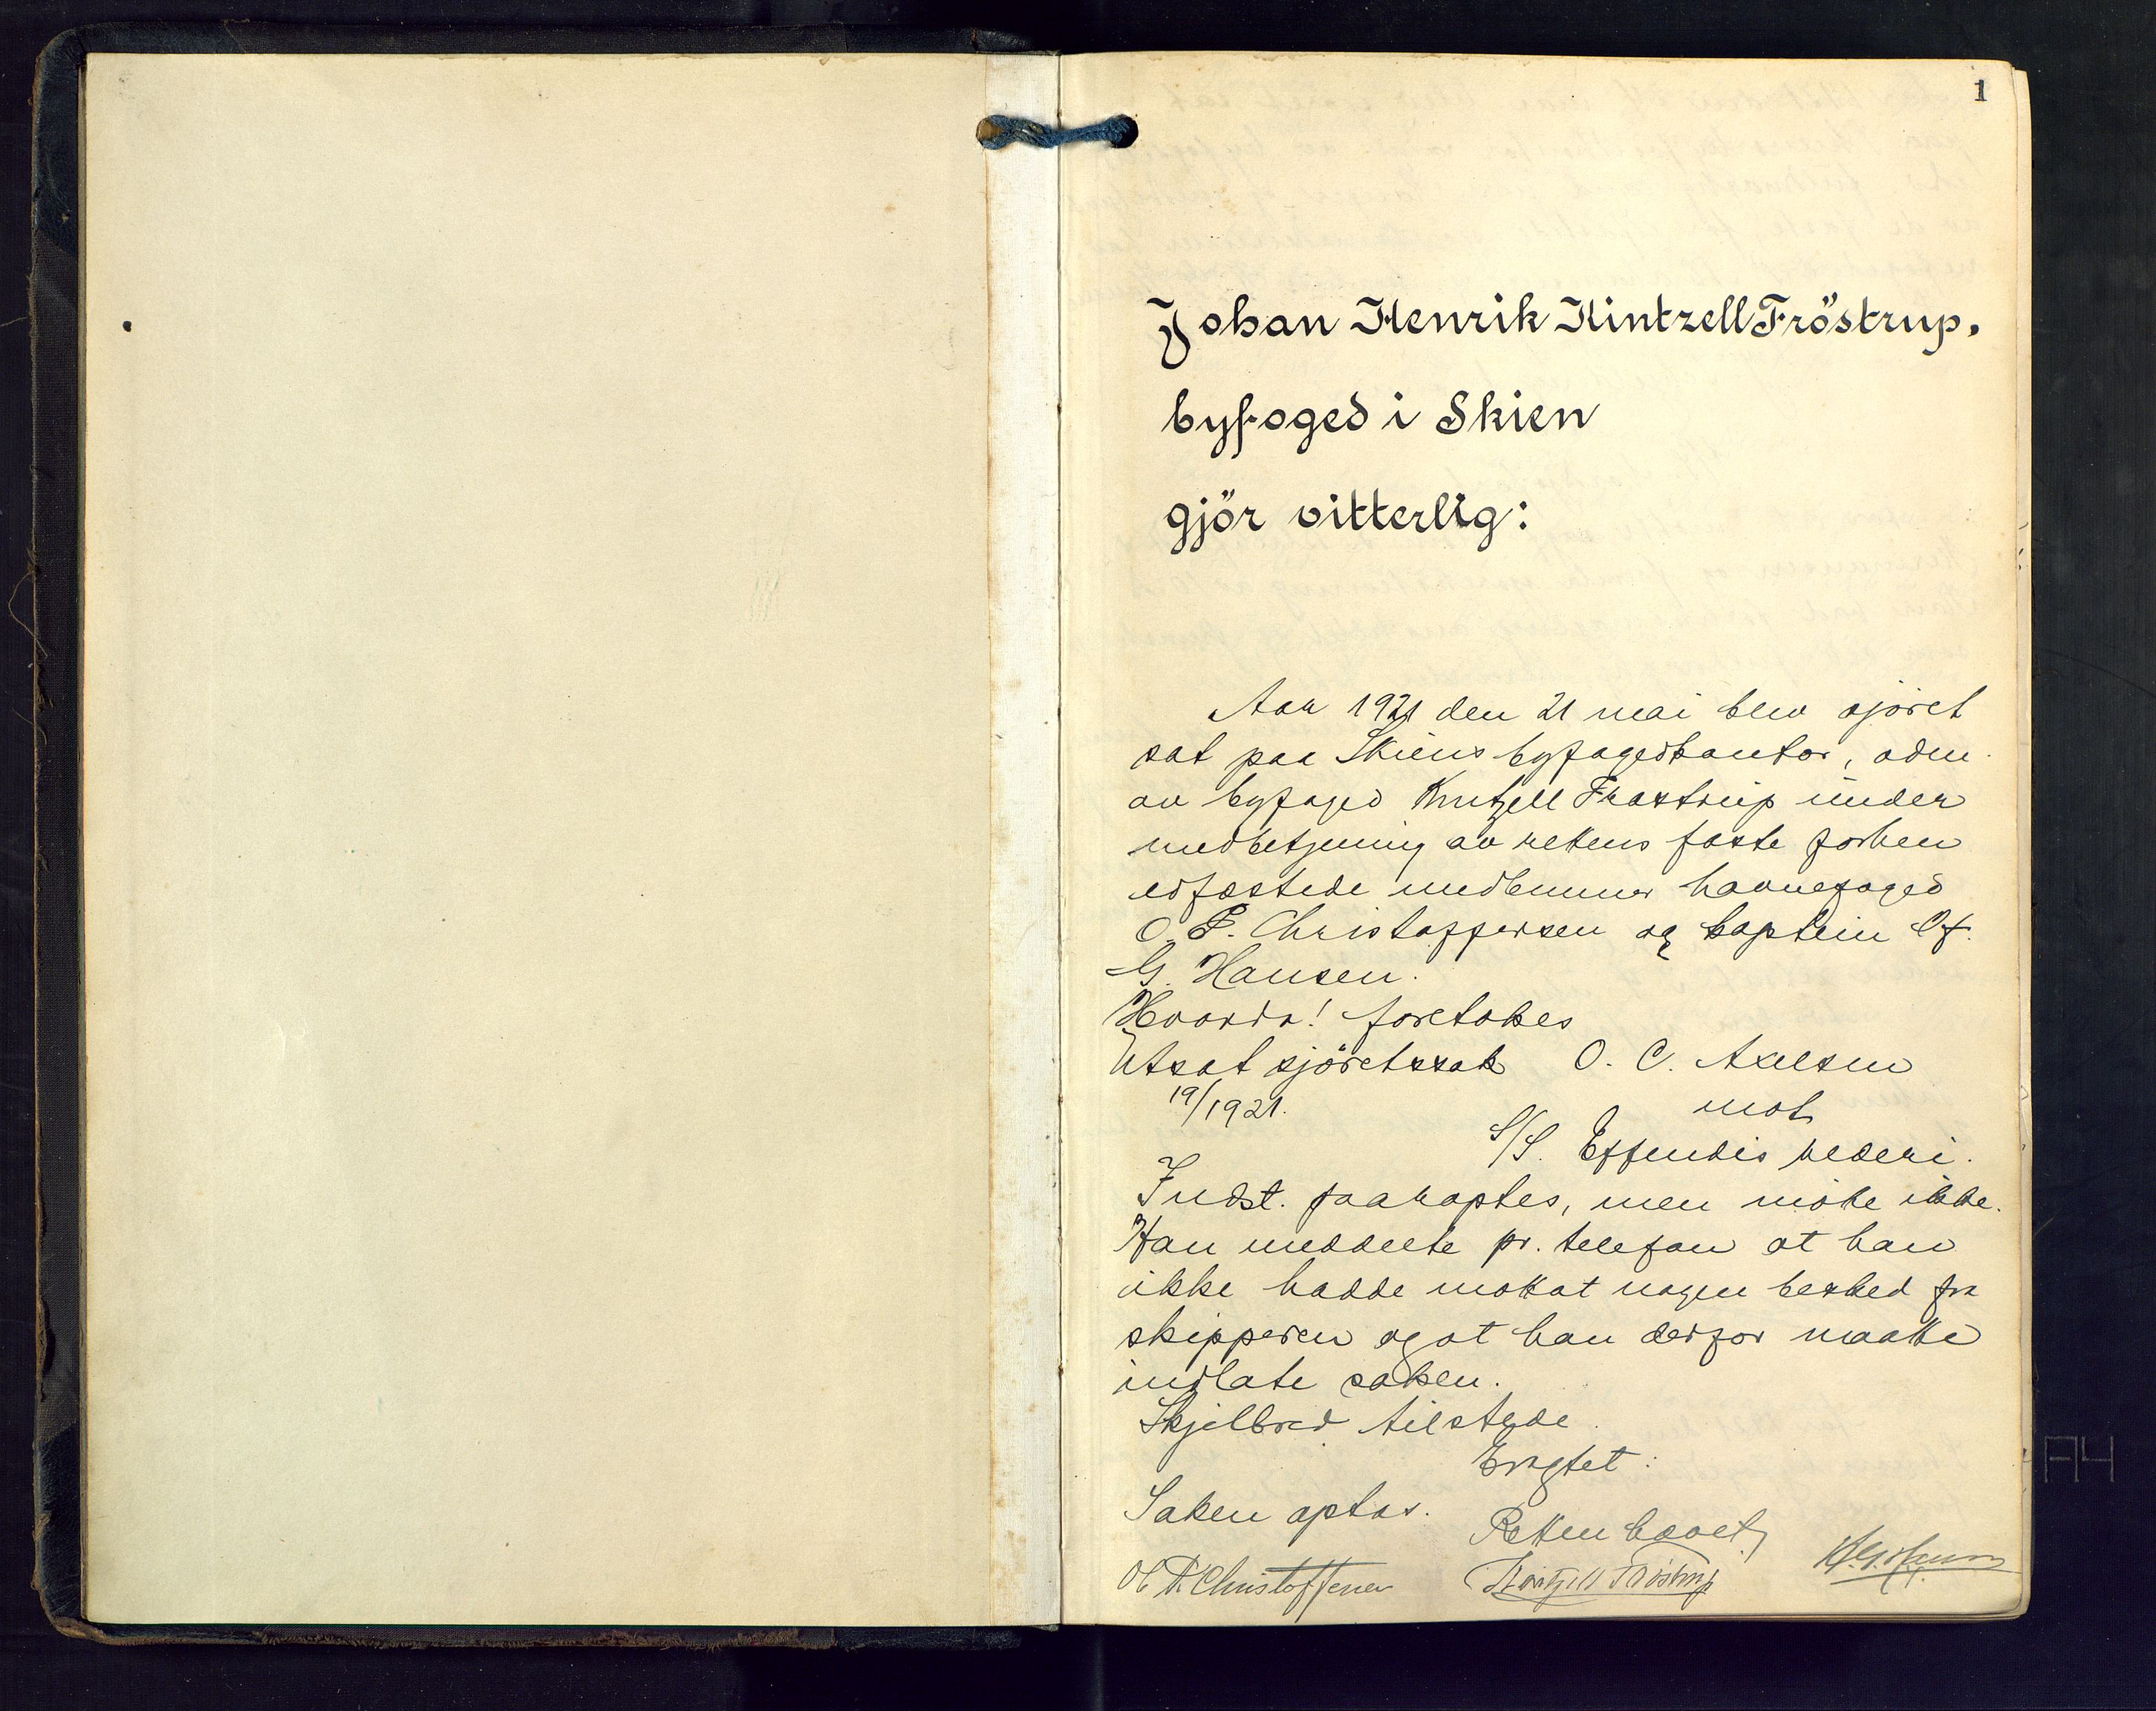 1
Johan Henrik Kintzell Fröstrup,
byfoged i Skien
gjör vitterlig:
Aar 1921 den 21 mai blev sjöret
sat paa Skiens byfogedkontor, adm.
av byfoged Kintzell Frøstrup under
medbetjening av rettens faste forhen
edfæstede medlemmer havnefoged
O. P. Christoffersen og kaptein Chr.
G. Hansen.
Hvorda! foretokes
Utsat sjöretssak O. C. Axelsen
19/1921.
mot
S/S. Effendis rederi.
Indst. paaraaptes, men møtte ikke.
Han meddelte pr. telefon at han
ikke hadde mottat nogen besked fra
skipperen og at han derfor maatte
indlate saken.
Skjelbred tilstede.
Eragtet:
Saken optas.
Retten hævet,
O P. Christoffersen
Kintzell Fröstrup